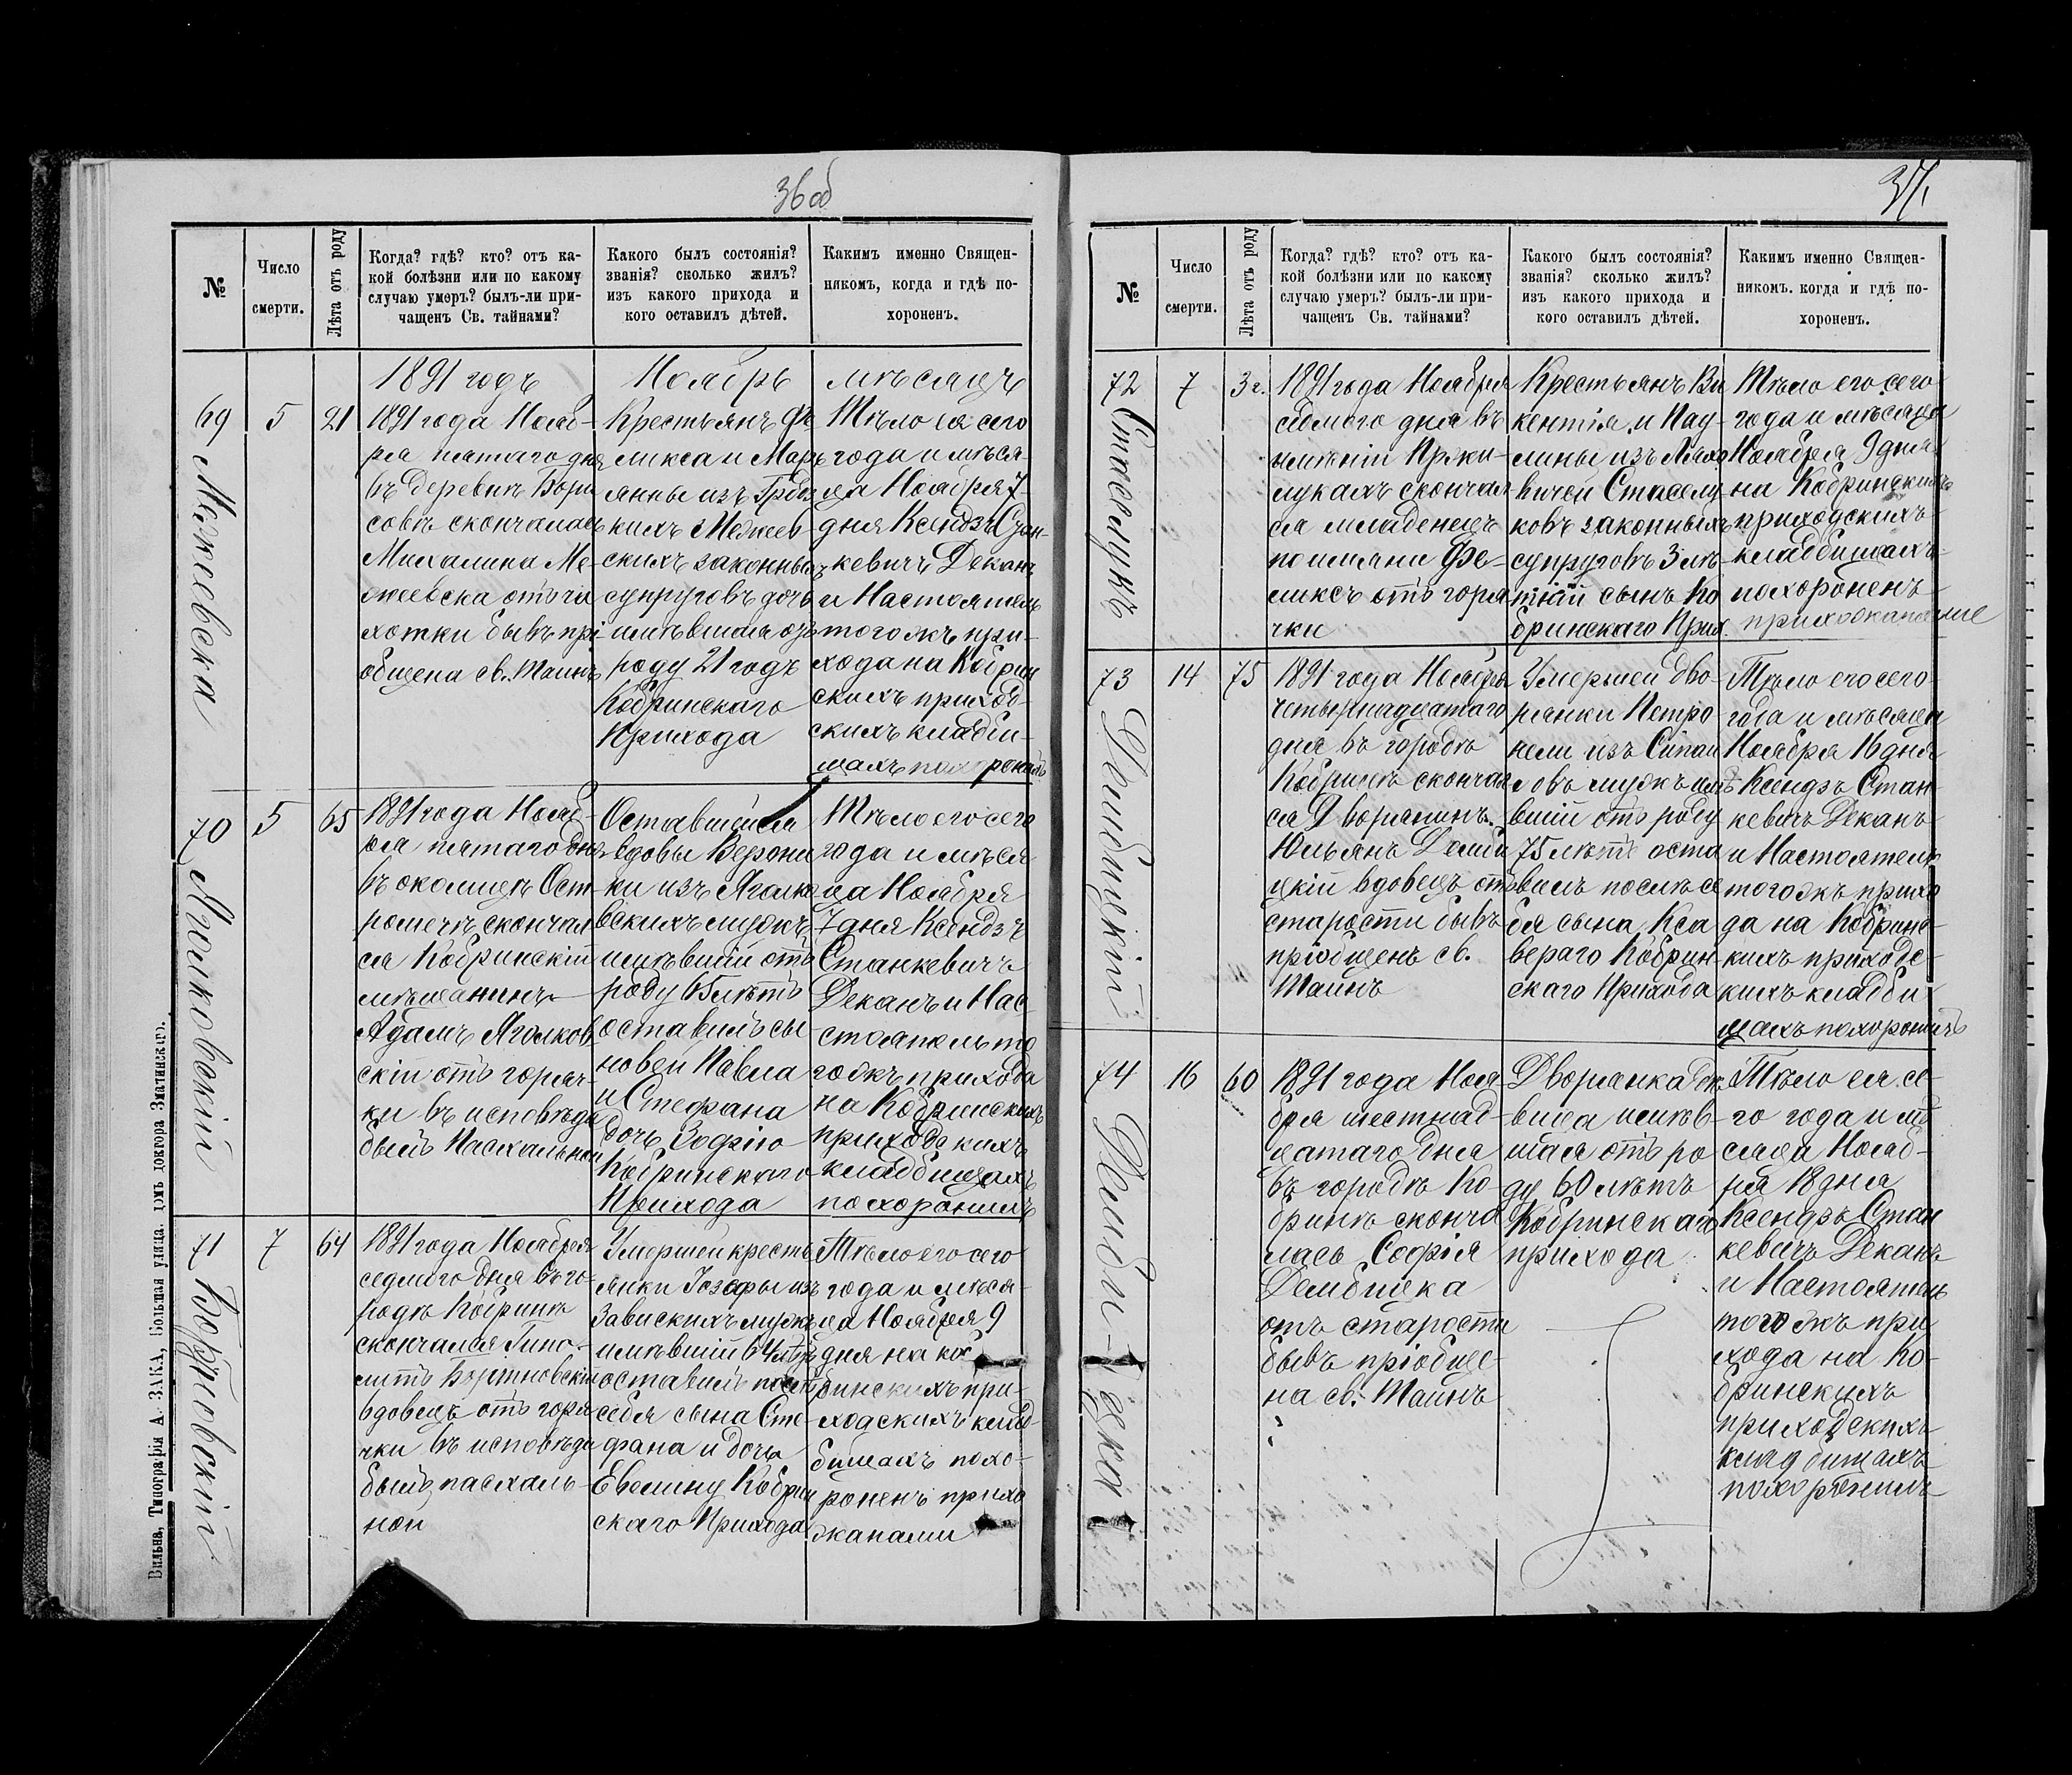 36 об
№
Число
смерти.
Лѣта отъ роду
Когда? гдѣ? кто? отъ ка-
кой болѣзни или по какому
случаю умеръ? былъ-ли при-
чащенъ Св. тайнами?
Какого былъ состоянія?
званія? сколько жилъ?
изъ какого прихода и
кого оставилъ дѣтей.
Какимъ именно Священ-
никомъ, когда и гдѣ по-
хороненъ.
1891 годъ Ноябрь мѣсяцъ
69
Межеевска
5
21
1891 года Нояб-
ря пятаго дня
въ деревнѣ Бори
совѣ скончалась
Михалина Ме-
жеевска отъ чи
хотки бывъ прі-
общена св. Таинъ
Крестьянъ Фе
ликса и Марь
янны изъ
кихъ Межеев-
скихъ законныхъ
супруговъ дочь
имѣвшая отъ
роду 21 годъ
Кобринскаго
Прихода
Тѣло ея сего
года и мѣся-
ца Ноября 7
дня Ксендзъ Стан-
кевичъ Деканъ
и Настоятель
тогожъ при-
хода на Кобрин
скихъ приход-
скихъ кладби-
щахъ похоронилъ
70
Яголковскій
5
65
1891 года Нояб-
ря пятаго дня
въ околицѣ Ост-
ромечъ скончал
ся Кобринскій
мѣщанинъ
Адамъ Яголков
скій отъ горяч-
ки въ исповѣди
былъ Пасхальной
Оставшейся
вдовы Верони
ки изъ Яголко
вскихъ мужъ
имѣвшій отъ
роду 65 лѣтъ
оставилъ сы
новей Павла
и Стефана
дочь Зофію
Кобринскаго
Прихода
Тѣло его сего
года и мѣся
ца Ноября
7 дня Ксендзъ
Станкевичъ
Деканъ и Нас
стоятель то
гожъ прихода
на Кобринскихъ
приходскихъ
кладбищахъ
похоронилъ
71
7
64
1891 года Ноября
седмого дня въ го-
родѣ Кобринѣ
скончался Гипо-
литъ
вдовецъ отъ горя
чки въ исповѣди
былъ пасхаль-
ной
Умершей кресть
янки Іозефы изъ
Завискихъ мужъ
имѣвшій 64 лѣтъ
оставилъ послѣ
себя сына Сте-
фана и дочь
Евелину Кобрин
скаго Прихода
Тѣло его сего
года и мѣся-
ца Ноября 9
дня на Ко
бринскихъ при-
ходскихъ клад-
бищахъ похо-
роненъ прихо
жанами
Вильна, Типографія А. ЗАКА, Большая улица, домъ доктора Зматинскаго.
37.
№
Число
смерти.
Лѣта отъ роду
Когда? гдѣ? кто? отъ ка-
кой болѣзни или по какому
случаю умеръ? былъ-ли при-
чащенъ Св. тайнами?
Какого былъ состоянія?
званія? сколько жилъ?
изъ какого прихода и
кого оставилъ дѣтей.
Какимъ именно Священ-
никомъ, когда и гдѣ по-
хороненъ.
72
Стаселукъ
7
3 г.
1891 года Ноября
седмого дня въ
имѣніи Пржи-
лукахъ скончал
ся младенецъ
по имяни Фе-
ликсъ отъ горя
чки
Крестьянъ Ви
кентія и Пау-
лины изъ Ляхо
вичей Стаселу
ковъ законныхъ
супруговъ 3 лѣ
тній сынъ Ко
бринскаго Прих.
Тѣло его сего
года и мѣсяца
Ноября 9 дня
на Кобринскихъ
приходскихъ
кладбищахъ
похороненъ
прихожанами
73
Дембицкій
14
75
1891 года Ноября
четырнадцатаго
дня въ городѣ
Кобринѣ скончал
ся Дворянинъ
Юльянъ Демби
цкій вдовецъ отъ
старости бывъ
пріобщенъ св.
Таинъ
Умершей дво-
рянки Петро
нели изъ
мужъ имѣ
вшій отъ роду
75 лѣтъ оста
вилъ послѣ се
бя сына Кса
вераго Кобрин
скаго Прихода
Тѣло его сего
года и мѣсяца
Ноября 16 дня
Ксендзъ Стан
кевичъ Деканъ
и Настоятель
тогожъ прихо
да на Кобринс-
кихъ приходс-
кихъ кладби
щахъ похоронилъ
74
Дембицка
16
60
1891 года Ноя-
бря шестнад-
цатаго дня
въ городѣ Ко-
бринѣ сконча
лась Софія
Дембицка
отъ старости
бывъ пріобще-
на св. Таинъ
Дворянка дѣ-
вица имѣв-
шая отъ ро
ду 60 лѣтъ
Кобринскаго
прихода
Тѣло ея се-
го года и мѣ
сяца Нояб-
ря 18 дня
Ксендзъ Стан
кевичъ Деканъ
и Настоятель
тогожъ при
хода на Ко-
бринскихъ
приходскихъ
кладбищахъ
похоронилъ